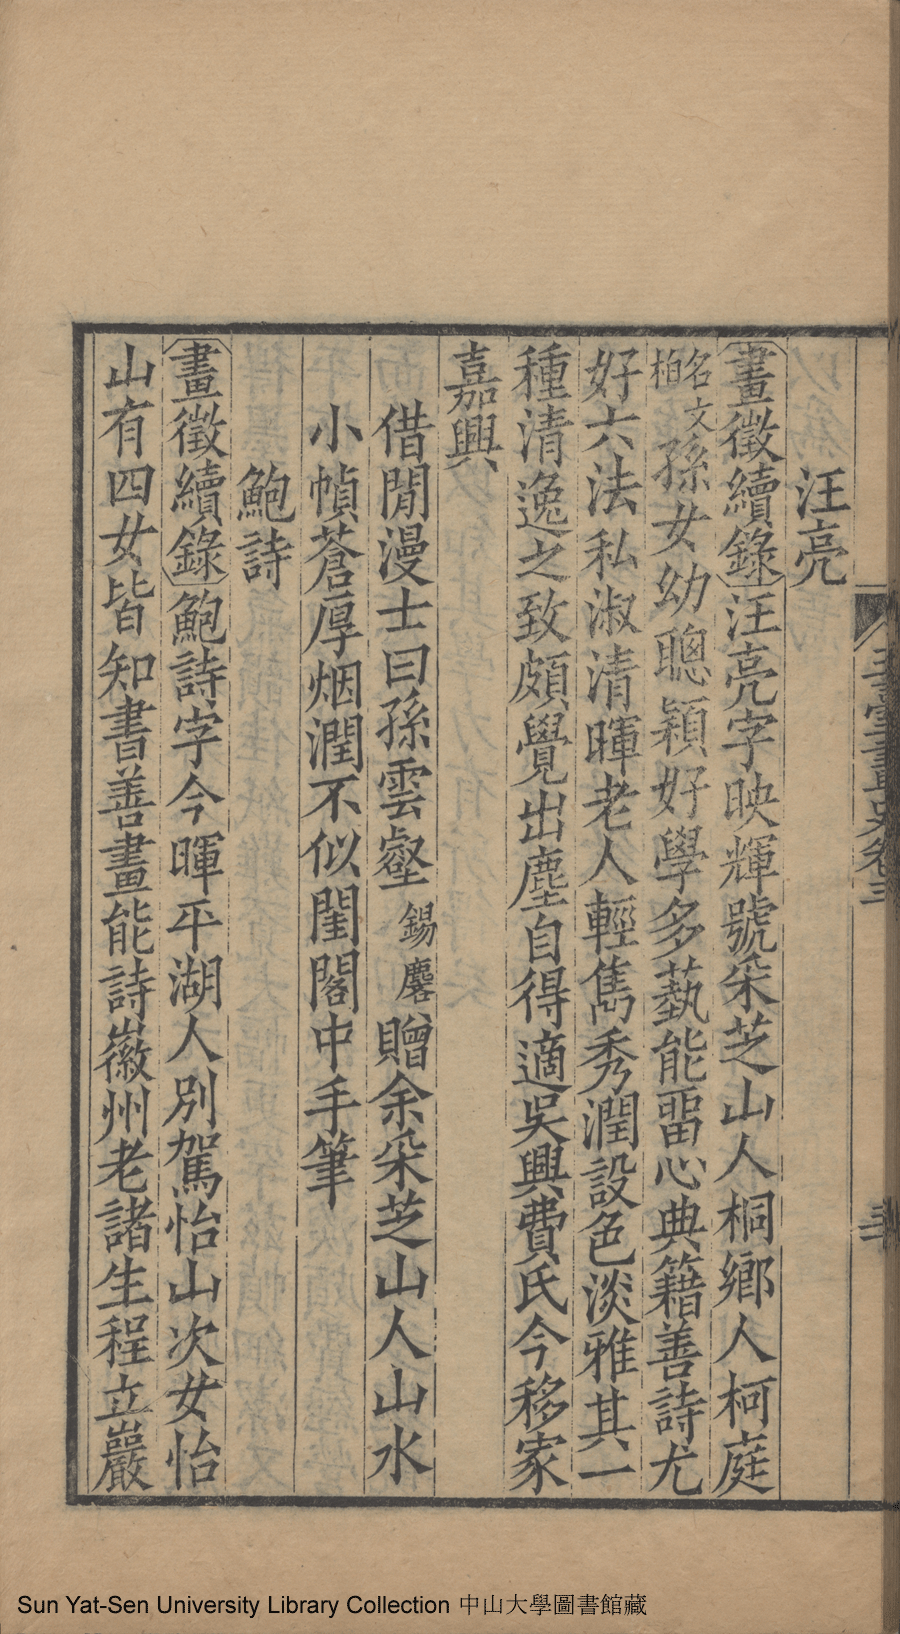 汪亮
畫徵續錄汪亮字映輝號采芝山人桐鄉人柯庭
名文柏孫女幼聰穎好學多藝能畱心典籍善詩尤
好六法私淑清暉老人輕雋秀潤設色淡雅其一
種清逸之致頗覺出塵自得適吳興費氏今移家
嘉興
借閒漫士曰孫雲壑錫麐贈余采芝山人山水
小幀蒼厚烟潤不似閨閣中手筆
鮑詩
畫徵續錄鮑詩字今暉平湖人別駕怡山次女怡
山有四女皆知書善畫能詩徽州老諸生程立巖
玉臺畫史卷三
Sun Yat-Sen University Library Collection 中山大學圖書館藏